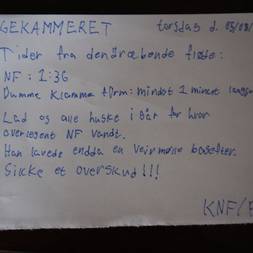 GEKAMMERET
torsdag d.
Tider fra den dræbende fløjte:
NF : 1:36
Dumme Klamme form: mindst 1 minut
Lad os alle huske i går for hvor
overlegent NF vandt.
Han lavede endda en Vejrmølle
Sikke et overskud!!!
KNF/